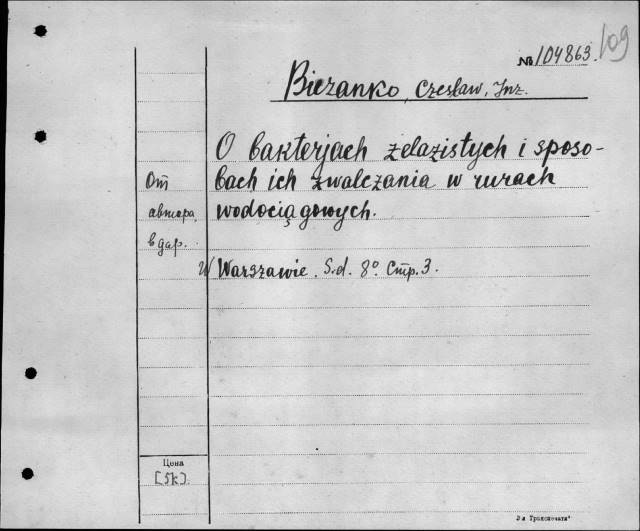 109
№ 104863.
Bieżanko, Czesław, Inż.
O bakterjach żelazistych i sposo-
bach ich zwalczania w rurach
wodociągowych.
От
автора,
в дар.
W Warszawie. S.d. 8º. Стр. 3.
Цена
[5к].